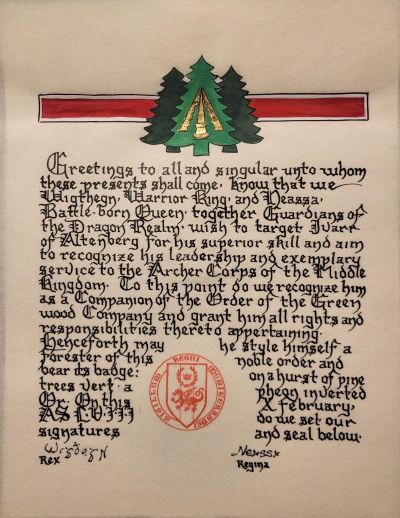 Greetings to all and singular unto whom
these presents shall come, know that we
Wigthegn, Warrior King, and Neassa,
Battle-born Queen, together Guardians of
the Dragon Realm, wish to target Ivarr
of Altenberg for his superior skill and aim
to recognize his leadership and exemplary
service to the Archer Corps of the Middle
Kingdom. To this point do we recognize him
as a Companion of the Order of the Green
wood Company and grant him all rights and
responsibilities thereto appertaining.
Henceforth may he style himself a
Forester of this noble order and
bear its badge: on a hurst of pine
trees vert, a pheon inverted
Or. On this X February,
AS LVIII do we set our
signatures and seal below.
Rex
Regina
SIGILLUM REGNI